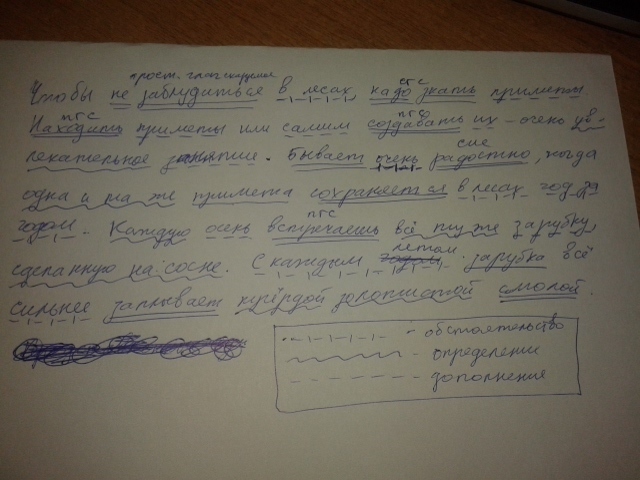 прост. глаг. сказуемое
Чтобы не заблудиться в лесах, надо знать приметы
сгс
Находить приметы или самим создавать их - очень ув-
пгс пгс
лекательное занятие. Бывает очень радостно, когда
сис
одна и та же примета сохраняется в лесах год за
годом. Каждую осень встречаешь всё ту же зарубку,
пгс
сделанную на сосне. С каждым годом летом зарубка всё
сильнее заплывает твёрдой золотистой смолой.
- обстоятельство
- определении
- дополнение